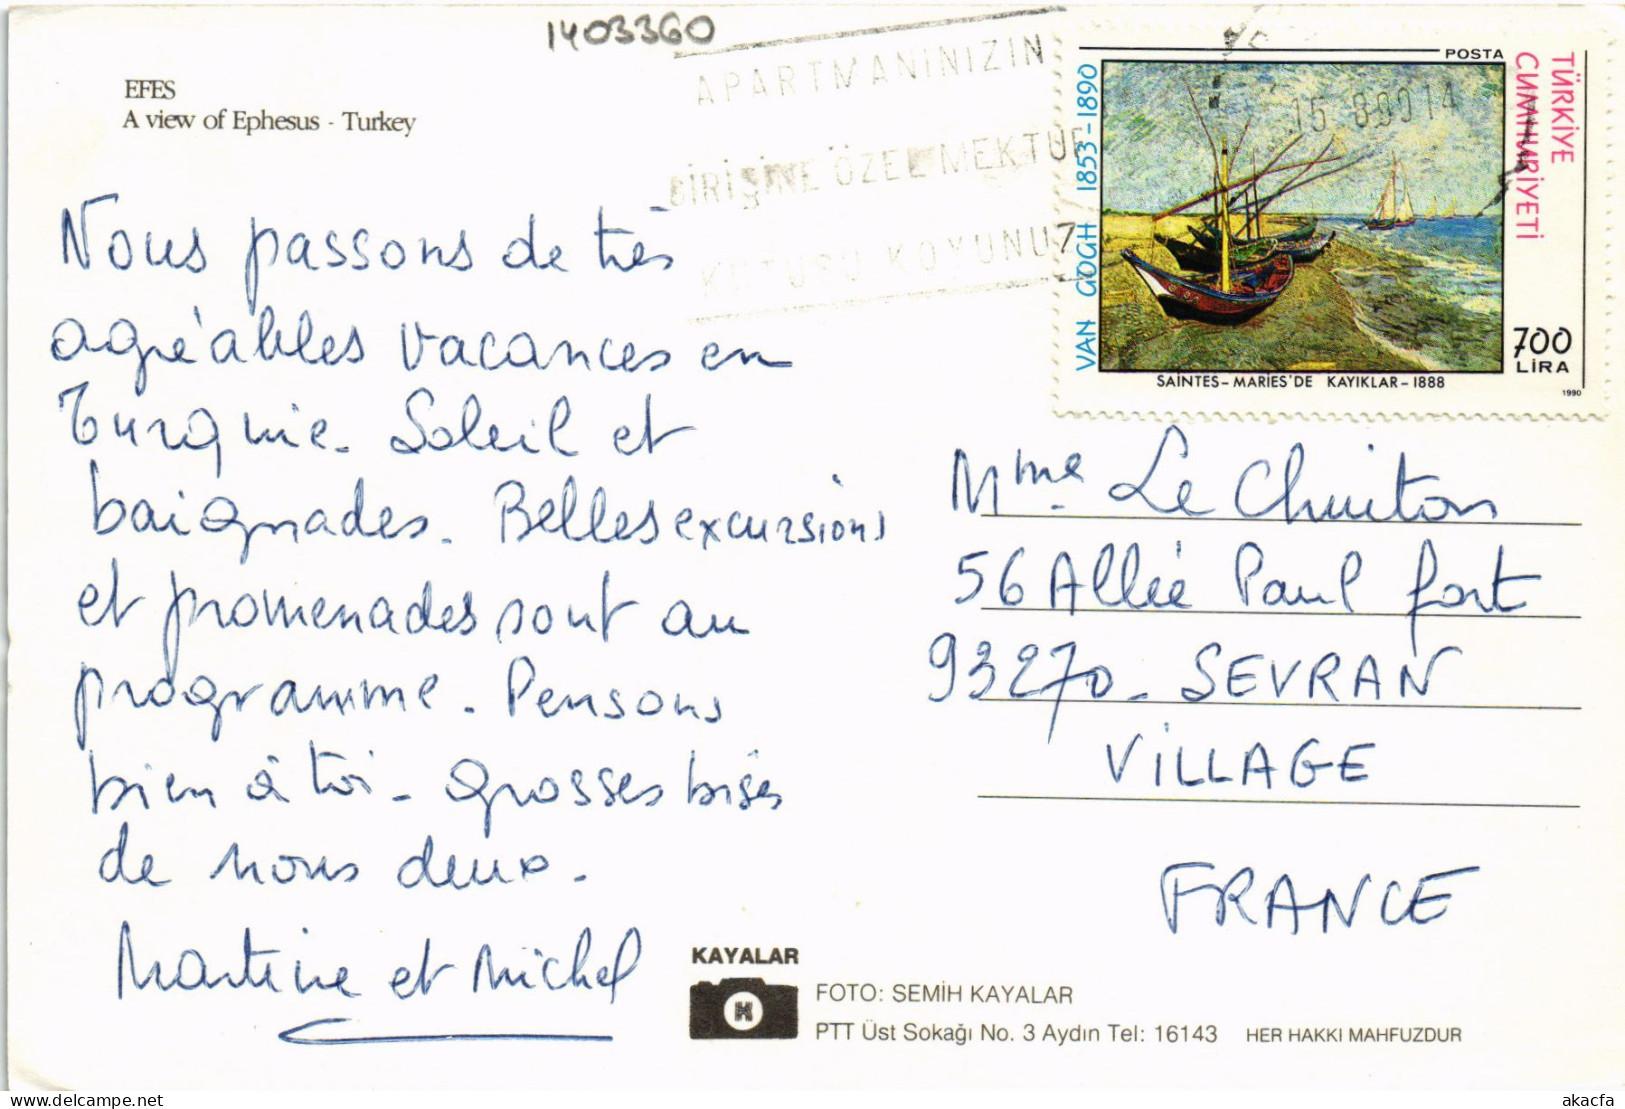 1403360
EFES
A view of Ephesus - Turkey
APARTMANINIZIN
GİRİŞİNE ÖZEL MEKTUP
KUTUSU KOYUNUZ
15 8 90 14
POSTA
TÜRKİYE
CUMHURİYETİ
VAN GOGH 1853-1890
700
LİRA
SAINTES-MARIES'DE KAYIKLAR-1888
1990
Nous passons de très
agréables vacances en
Turquie. Soleil et
baignades. Belles excursions
et promenades sont au
programme. Pensons
bien à toi - grosses bises
de nous deux.
Martine et Michel
Mme Le Chuiton
56 Allée Paul fort
93270 - SEVRAN
VILLAGE
FRANCE
KAYALAR
K
FOTO: SEMİH KAYALAR
PTT Üst Sokağı No. 3 Aydın Tel: 16143 HER HAKKI MAHFUZDUR
delcampe.net
akacfa